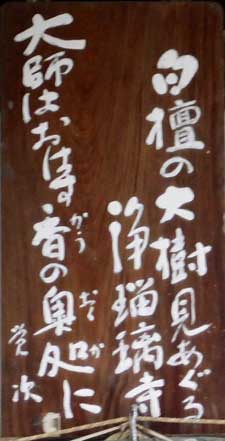 白檀の大樹見あぐる
浄瑠璃寺
大師はおはす香の奥処に
かう
おくか
覚次